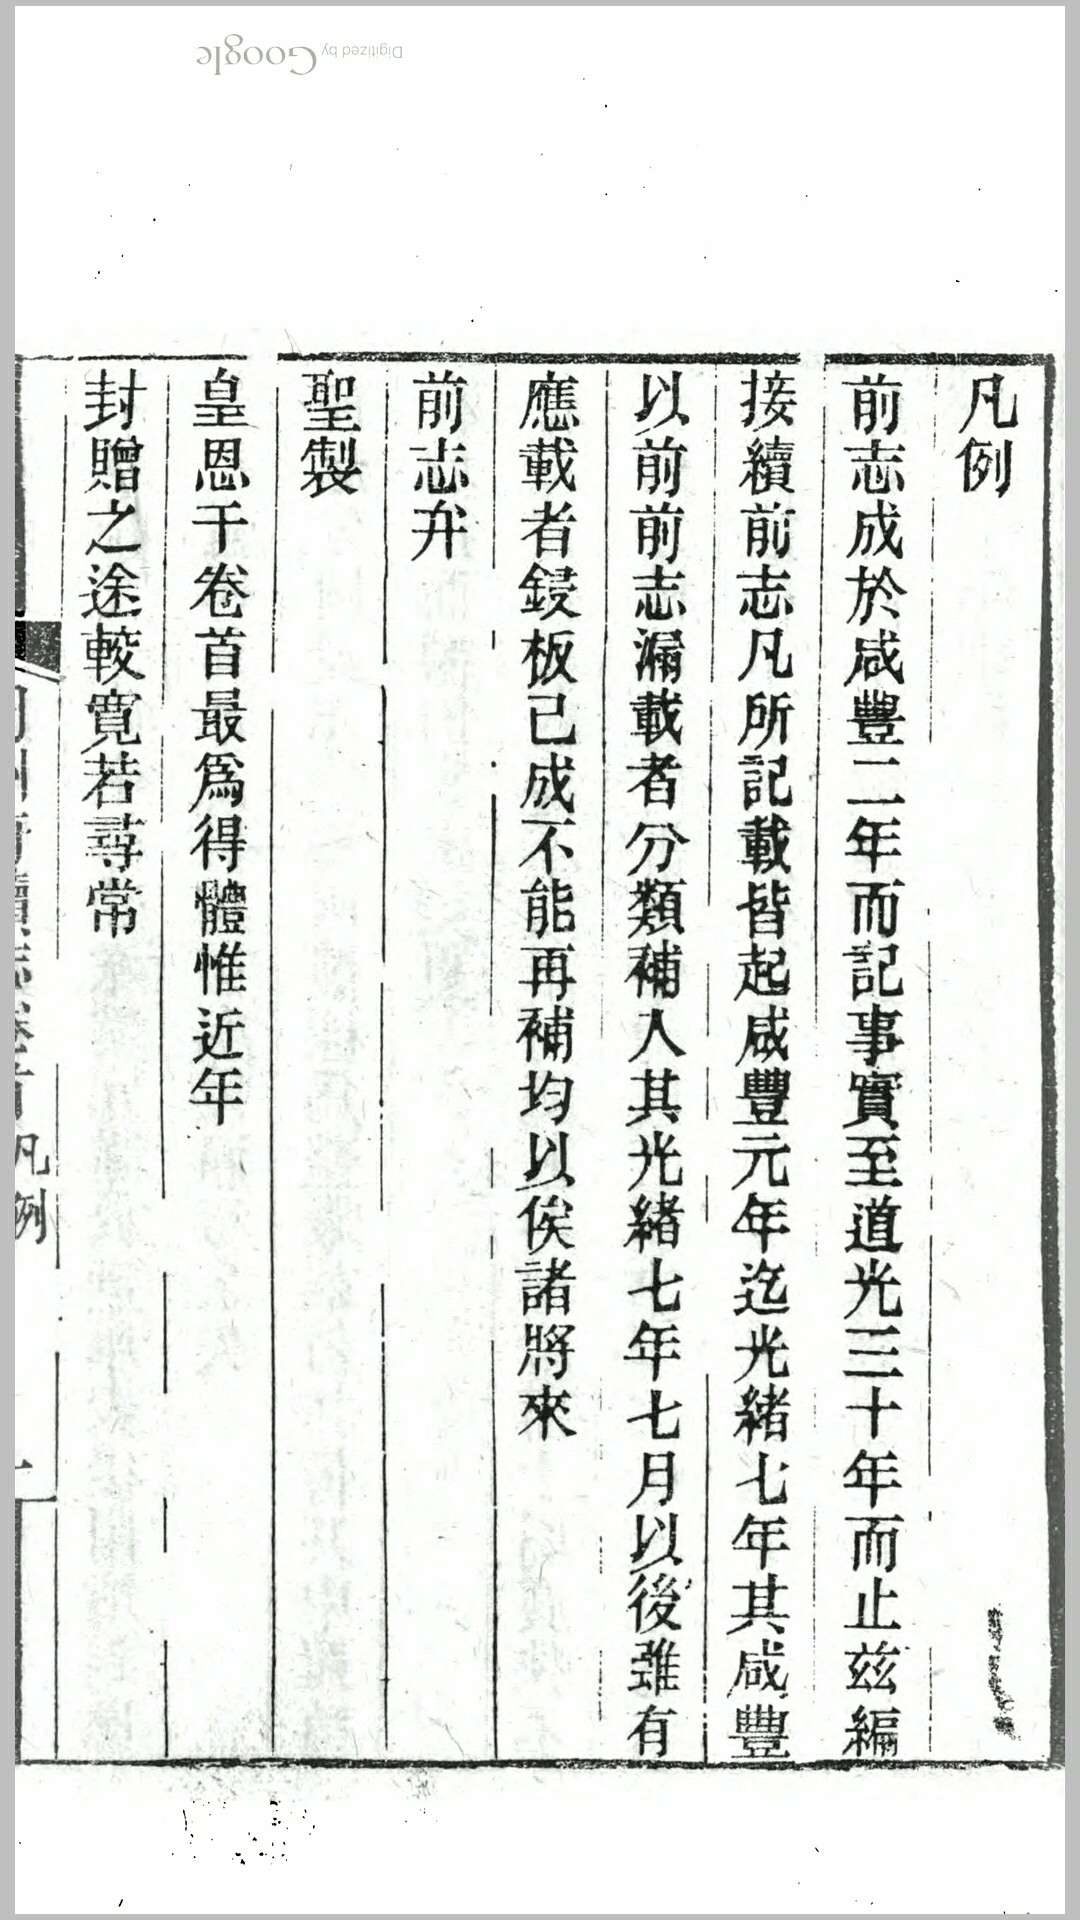 凡例
前志成於咸豐二年而記事實至道光三十年而止茲編
接續前志凡所記載皆起咸豐元年迄光緒七年其咸豐
以前前志漏載者分類補入其光緒七年七月以後雖有
應載者鋟板已成不能再補均以俟諸將來
前志弁
聖製
皇恩于卷首最爲得體惟近年
封贈之途較寬若尋常
凡例
Digitized by Google